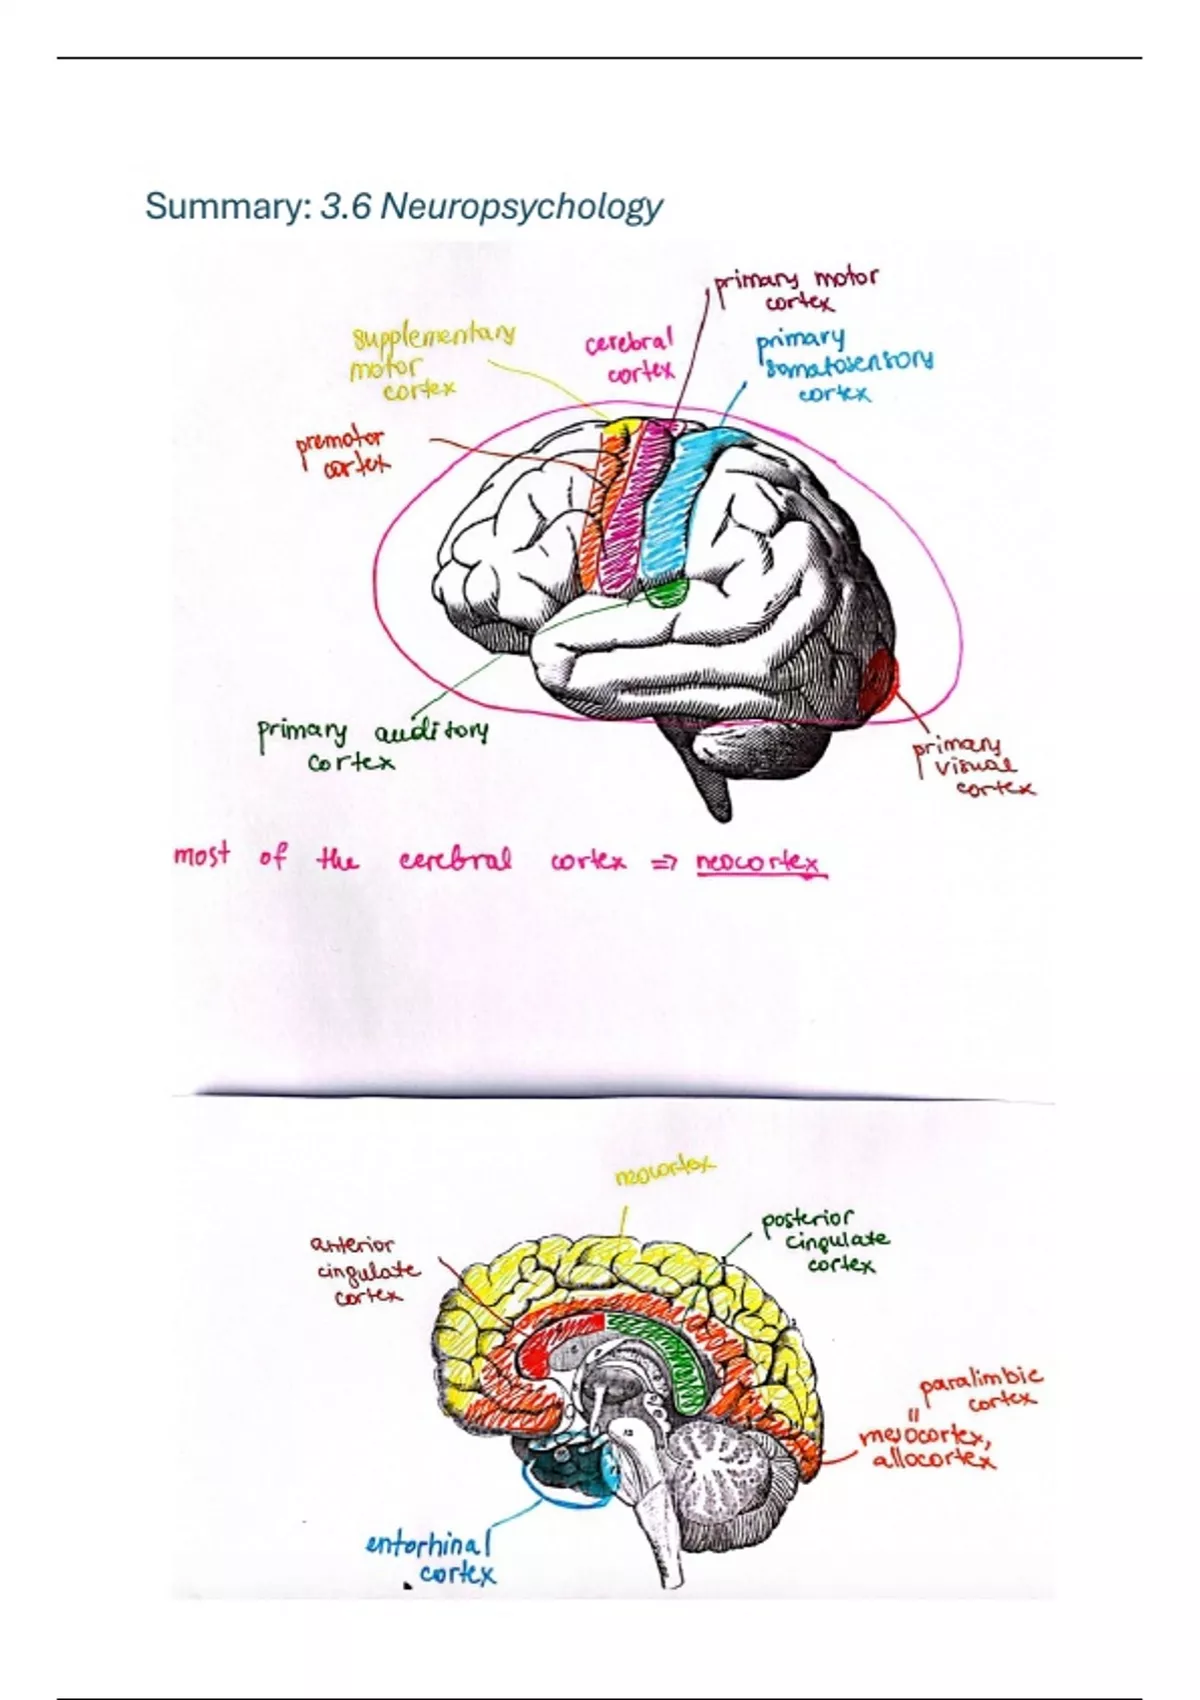 Summary: 3.6 Neuropsychology
primary motor
cortex
supplementary
motor
cortex
cerebral
cortex
primary
somatosensory
cortex
premotor
cortex
primary auditory
cortex
primary
visual
cortex
most of the cerebral cortex => neocortex
neocortex
posterior
cingulate
cortex
anterior
cingulate
cortex
paralimbic
cortex
=
mesocortex,
allocortex
entorhinal
cortex